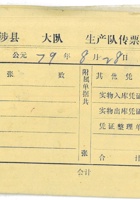 涉县 大队 生产队传票
公元 79 年 8 月 28 日
张数
附属单据共
张
其他凭
实物入库凭证
实物出库凭证
凭证整理单
会计